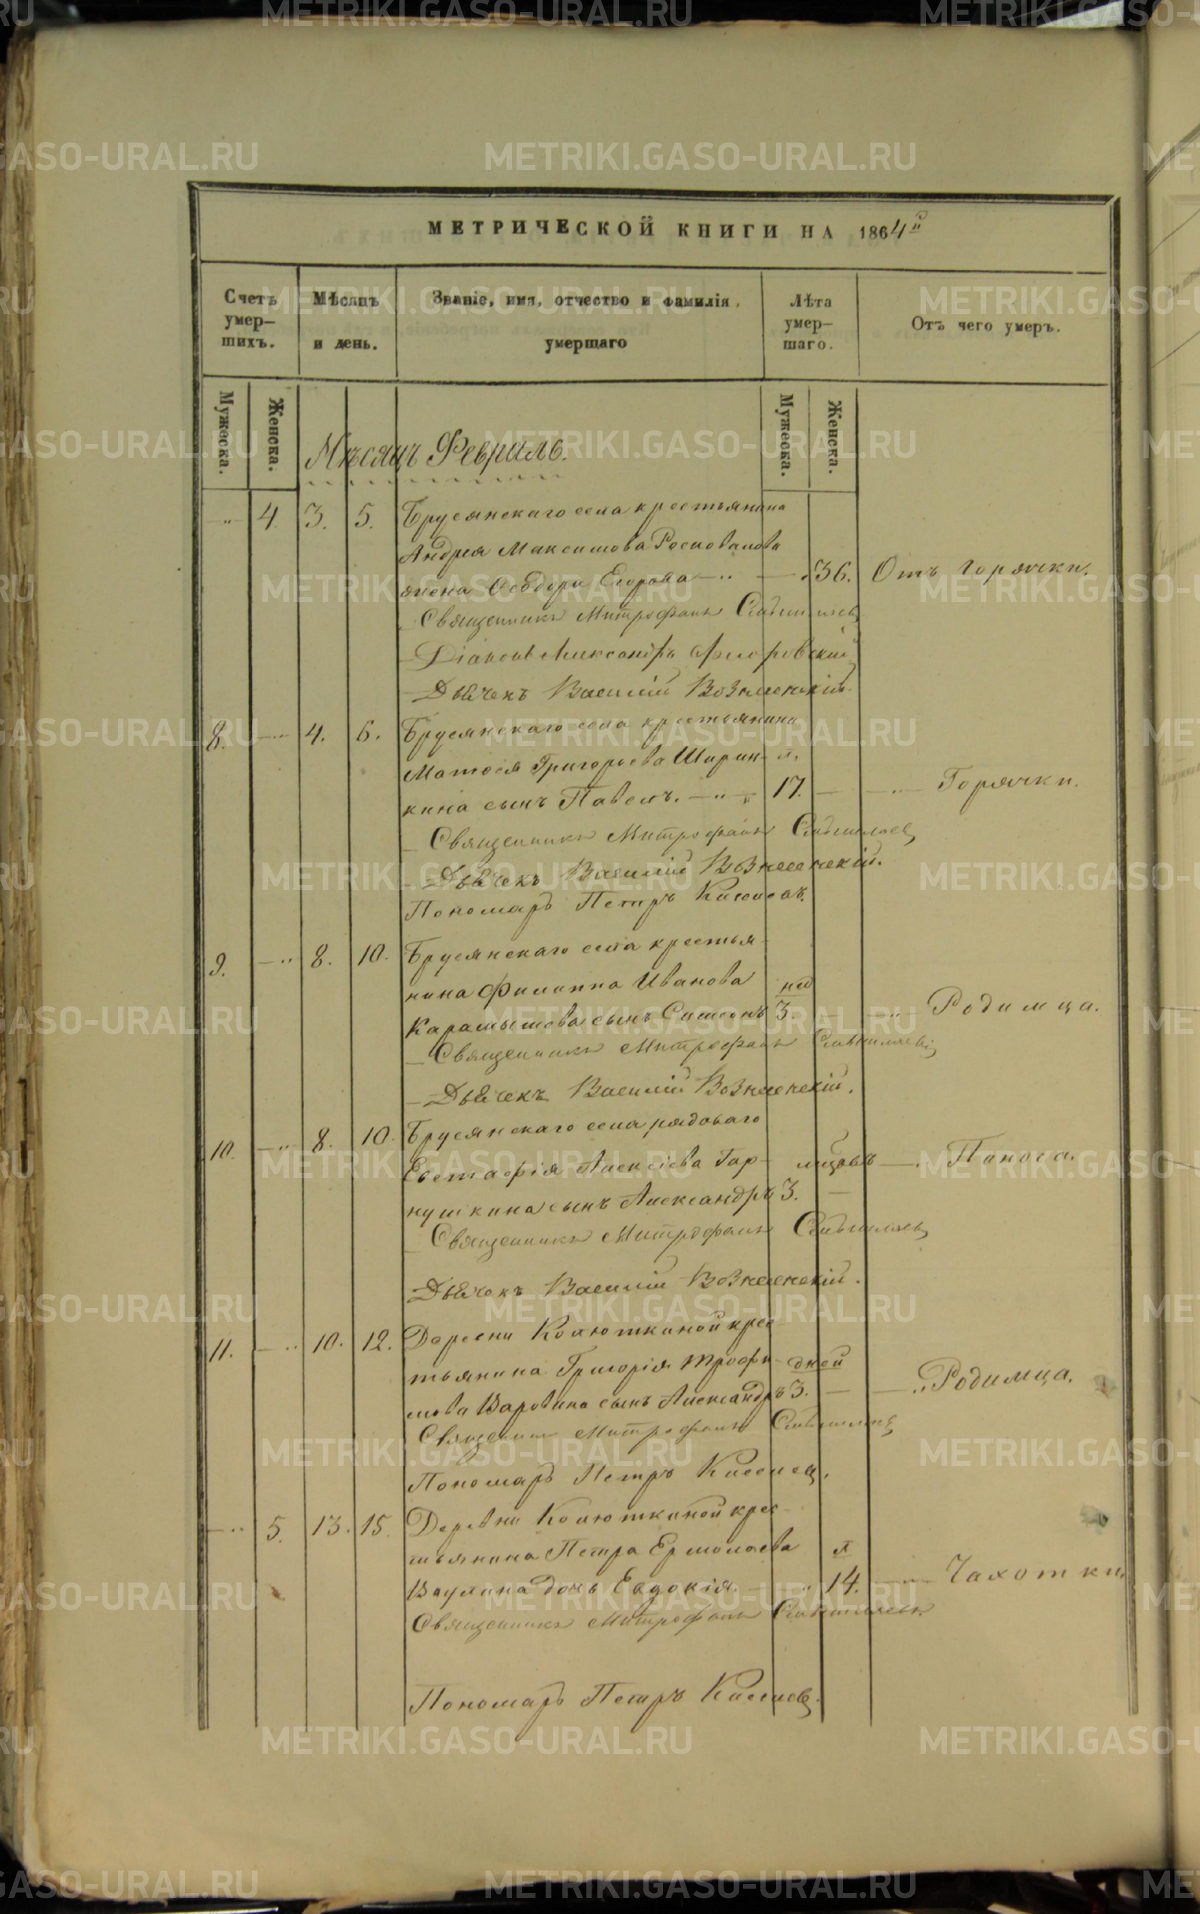 МЕТРИЧЕСКОЙ КНИГИ НА 1864й
Счетъ умер-шихъ. Мѣсяцъ и день. Званіе, имя, отчество и фамилія умершаго Лѣта умер-шаго. Отъ чего умеръ.
Мужеска. Женска. Мужеска. Женска.
Мѣсяцъ Февраль.
4. 3. 5. Брусянскаго села крестьянина
Андрея Максимова
жена Егорова 36. Отъ горячки.
Священникъ Митрофанъ
Діаконъ Александръ Флоровскій
Дьячекъ Василій Вознесенскій.
8. 4. 6. Брусянскаго села крестьянина
Матвея Григорьева Ширин- л.
кина сынъ Павелъ. 17. Горячки.
Священникъ Митрофанъ
Дьячекъ Василій Вознесенскій.
Пономарь Петръ
9. 8. 10. Брусянскаго села крестья-
нина Филиппа Иванова нед
Карамышева сынъ Симеонъ 3. Родимца.
Священникъ Митрофанъ
Дьячекъ Василій Вознесенскій.
10. 8. 10. Брусянскаго села рядоваго
Евстафія Алексіева Гар- мѣсяцовъ Поноса.
нушкина сынъ Александръ 3.
Священникъ Митрофанъ
Дьячекъ Василій Вознесенскій.
11. 10. 12. Деревни Колюткиной крес
тьянина Григорія Трофи- дней
мова сынъ Александръ 3. Родимца.
Священник Митрофанъ
Пономарь Петръ
5. 13. 15. Деревни Колюткиной крес-
тьянина Петра Ермолаева л
Ваулина дочь Евдокія. 14. Чахотки.
Священникъ Митрофанъ
Пономарь Петръ
METRIKI.GASO-URAL.RU